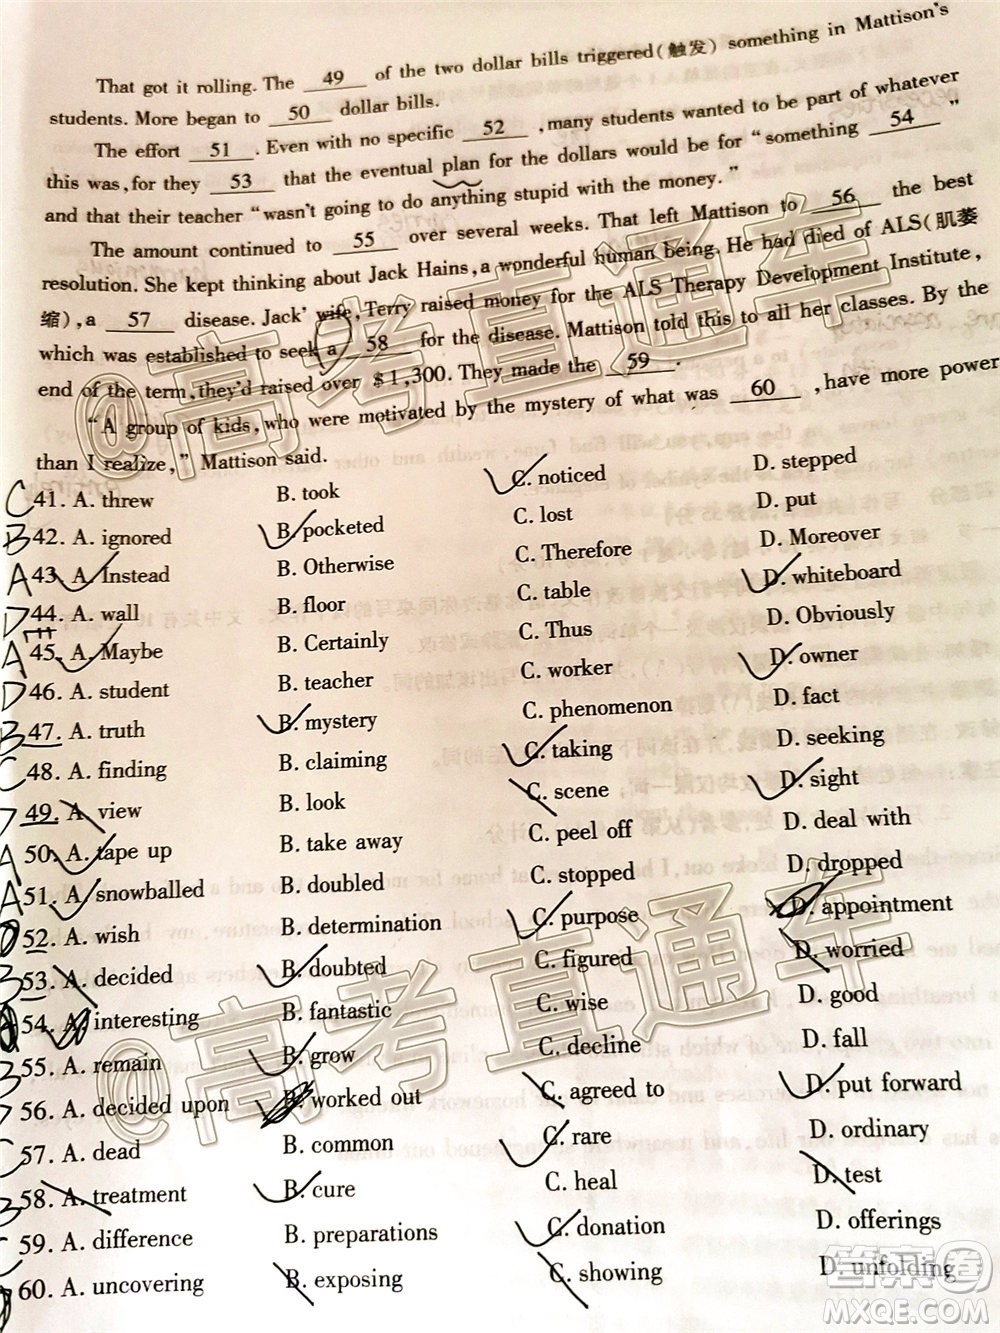 That got it rolling. The 49 of the two dollar bills triggered(触发) something in Mattison's
students. More began to 50 dollar bills.
The effort 51 . Even with no specific 52 , many students wanted to be part of whatever
this was, for they 53 that the eventual plan for the dollars would be for "something 54 "
and that their teacher "wasn't going to do anything stupid with the money."
The amount continued to 55 over several weeks. That left Mattison to 56 the best
resolution. She kept thinking about Jack Hains, a wonderful human being. He had died of ALS(肌萎
缩), a 57 disease. Jack' wife, Terry raised money for the ALS Therapy Development Institute,
which was established to seek a 58 for the disease. Mattison told this to all her classes. By the
end of the term, they'd raised over $1,300. They made the 59 .
"A group of kids, who were motivated by the mystery of what was 60 , have more power
than I realize," Mattison said.
C 41. A. threw B. took C. noticed D. stepped
B 42. A. ignored B. pocketed C. lost D. put
A 43. A. Instead B. Otherwise C. Therefore D. Moreover
D 44. A. wall B. floor C. table D. whiteboard
A 45. A. Maybe B. Certainly C. Thus D. Obviously
D 46. A. student B. teacher C. worker D. owner
B 47. A. truth B. mystery C. phenomenon D. fact
C 48. A. finding B. claiming C. taking D. seeking
D 49. A. view B. look C. scene D. sight
A 50. A. tape up B. take away C. peel off D. deal with
A 51. A. snowballed B. doubled C. stopped D. dropped
52. A. wish B. determination C. purpose D. appointment
B 53. A. decided B. doubted C. figured D. worried
54. A. interesting B. fantastic C. wise D. good
B 55. A. remain B. grow C. decline D. fall
D 56. A. decided upon B. worked out C. agreed to D. put forward
C 57. A. dead B. common C. rare D. ordinary
B 58. A. treatment B. cure C. heal D. test
C 59. A. difference B. preparations C. donation D. offerings
60. A. uncovering B. exposing C. showing D. unfolding
@高考直通车
@高考直通车
答案圈
MXQE.COM